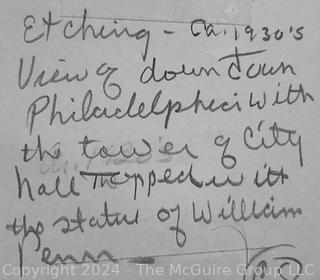 Etching - Ca. 1930's
View of downtown
Philadelphia with
the tower of City
hall topped with
the statue of William
Penn
Copyright 2024 - The McGuire Group LLC